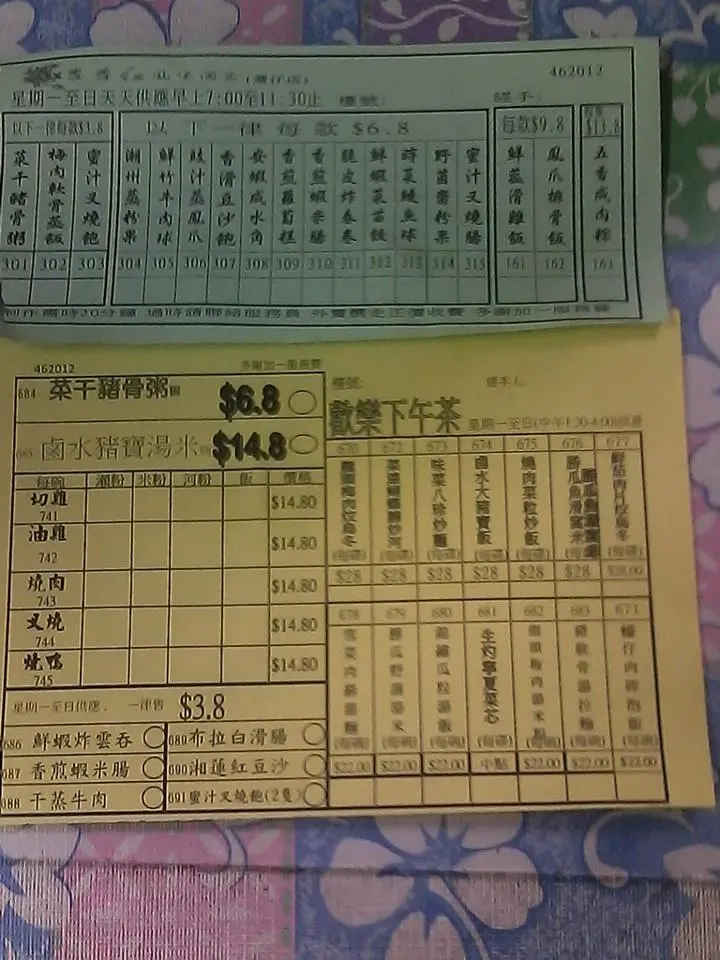 462012
星期一至日天天供應早上7:00至11:30止 檯號: 經手:
以下一律每款$3.8
以下一律每款$6.8
每款$9.8
$13.8
菜干豬骨粥 301
梅肉軟骨蒸飯 302
蜜汁叉燒飽 303
潮州蒸粉果 304
鮮竹牛肉球 305
豉汁蒸鳳爪 306
香滑豆沙飽 307
安蝦咸水角 308
香煎蘿蔔糕 309
香煎蝦米腸 310
脆皮炸春卷 311
鮮蝦菜苗餃 312
時菜鯪魚球 313
野菌齋粉果 314
蜜汁叉燒腸 315
鮮菇滑雞飯 161
鳳爪排骨飯 162
五香咸肉粽 163
462012
多謝加一服務費
684 菜干豬骨粥 $6.8
鹵水豬寶湯米 $14.8
每碗 瀨粉 米粉 河粉 飯 價格
切雞 741 $14.80
油雞 742 $14.80
燒肉 743 $14.80
叉燒 744 $14.80
燒鴨 745 $14.80
星期一至日供應, 一律售 $3.8
686 鮮蝦炸雲吞
689 布拉白滑腸
687 香煎蝦米腸
690 湘蓮紅豆沙
688 干蒸牛肉
691 蜜汁叉燒飽(2隻)
檯號: 經手人:
歡樂下午茶 星期一至日(中午1.30-4:00)供應
670 672 673 674 675 676 677
味菜八珍炒麵 (每碟)
鹵水大豬寶飯 (每碟)
燒肉菜粒炒飯 (每碟)
鮮茄肉片炆烏冬
$28 $28 $28 $28 $28 $28 $28.00
678 679 680 681 682 683 671
生灼寧夏菜芯
$22.00 $22.00 $22.00 中點 $22.00 $22.00 $22.00